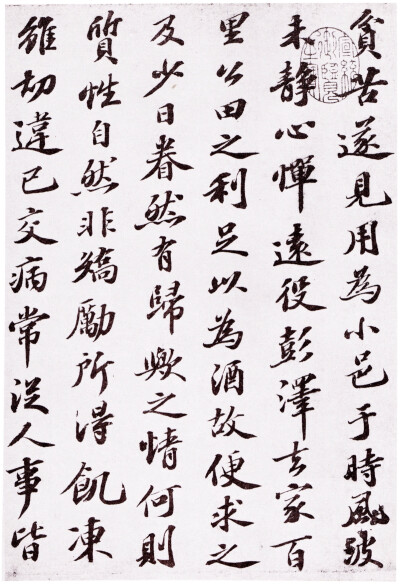 貧苦遂見用為小邑于時風波
未靜心憚遠役彭澤去家百
里公田之利足以為酒故便求之
及少日眷然有歸歟之情何則
質性自然非矯勵所得飢凍
雖切違己交病常從人事皆